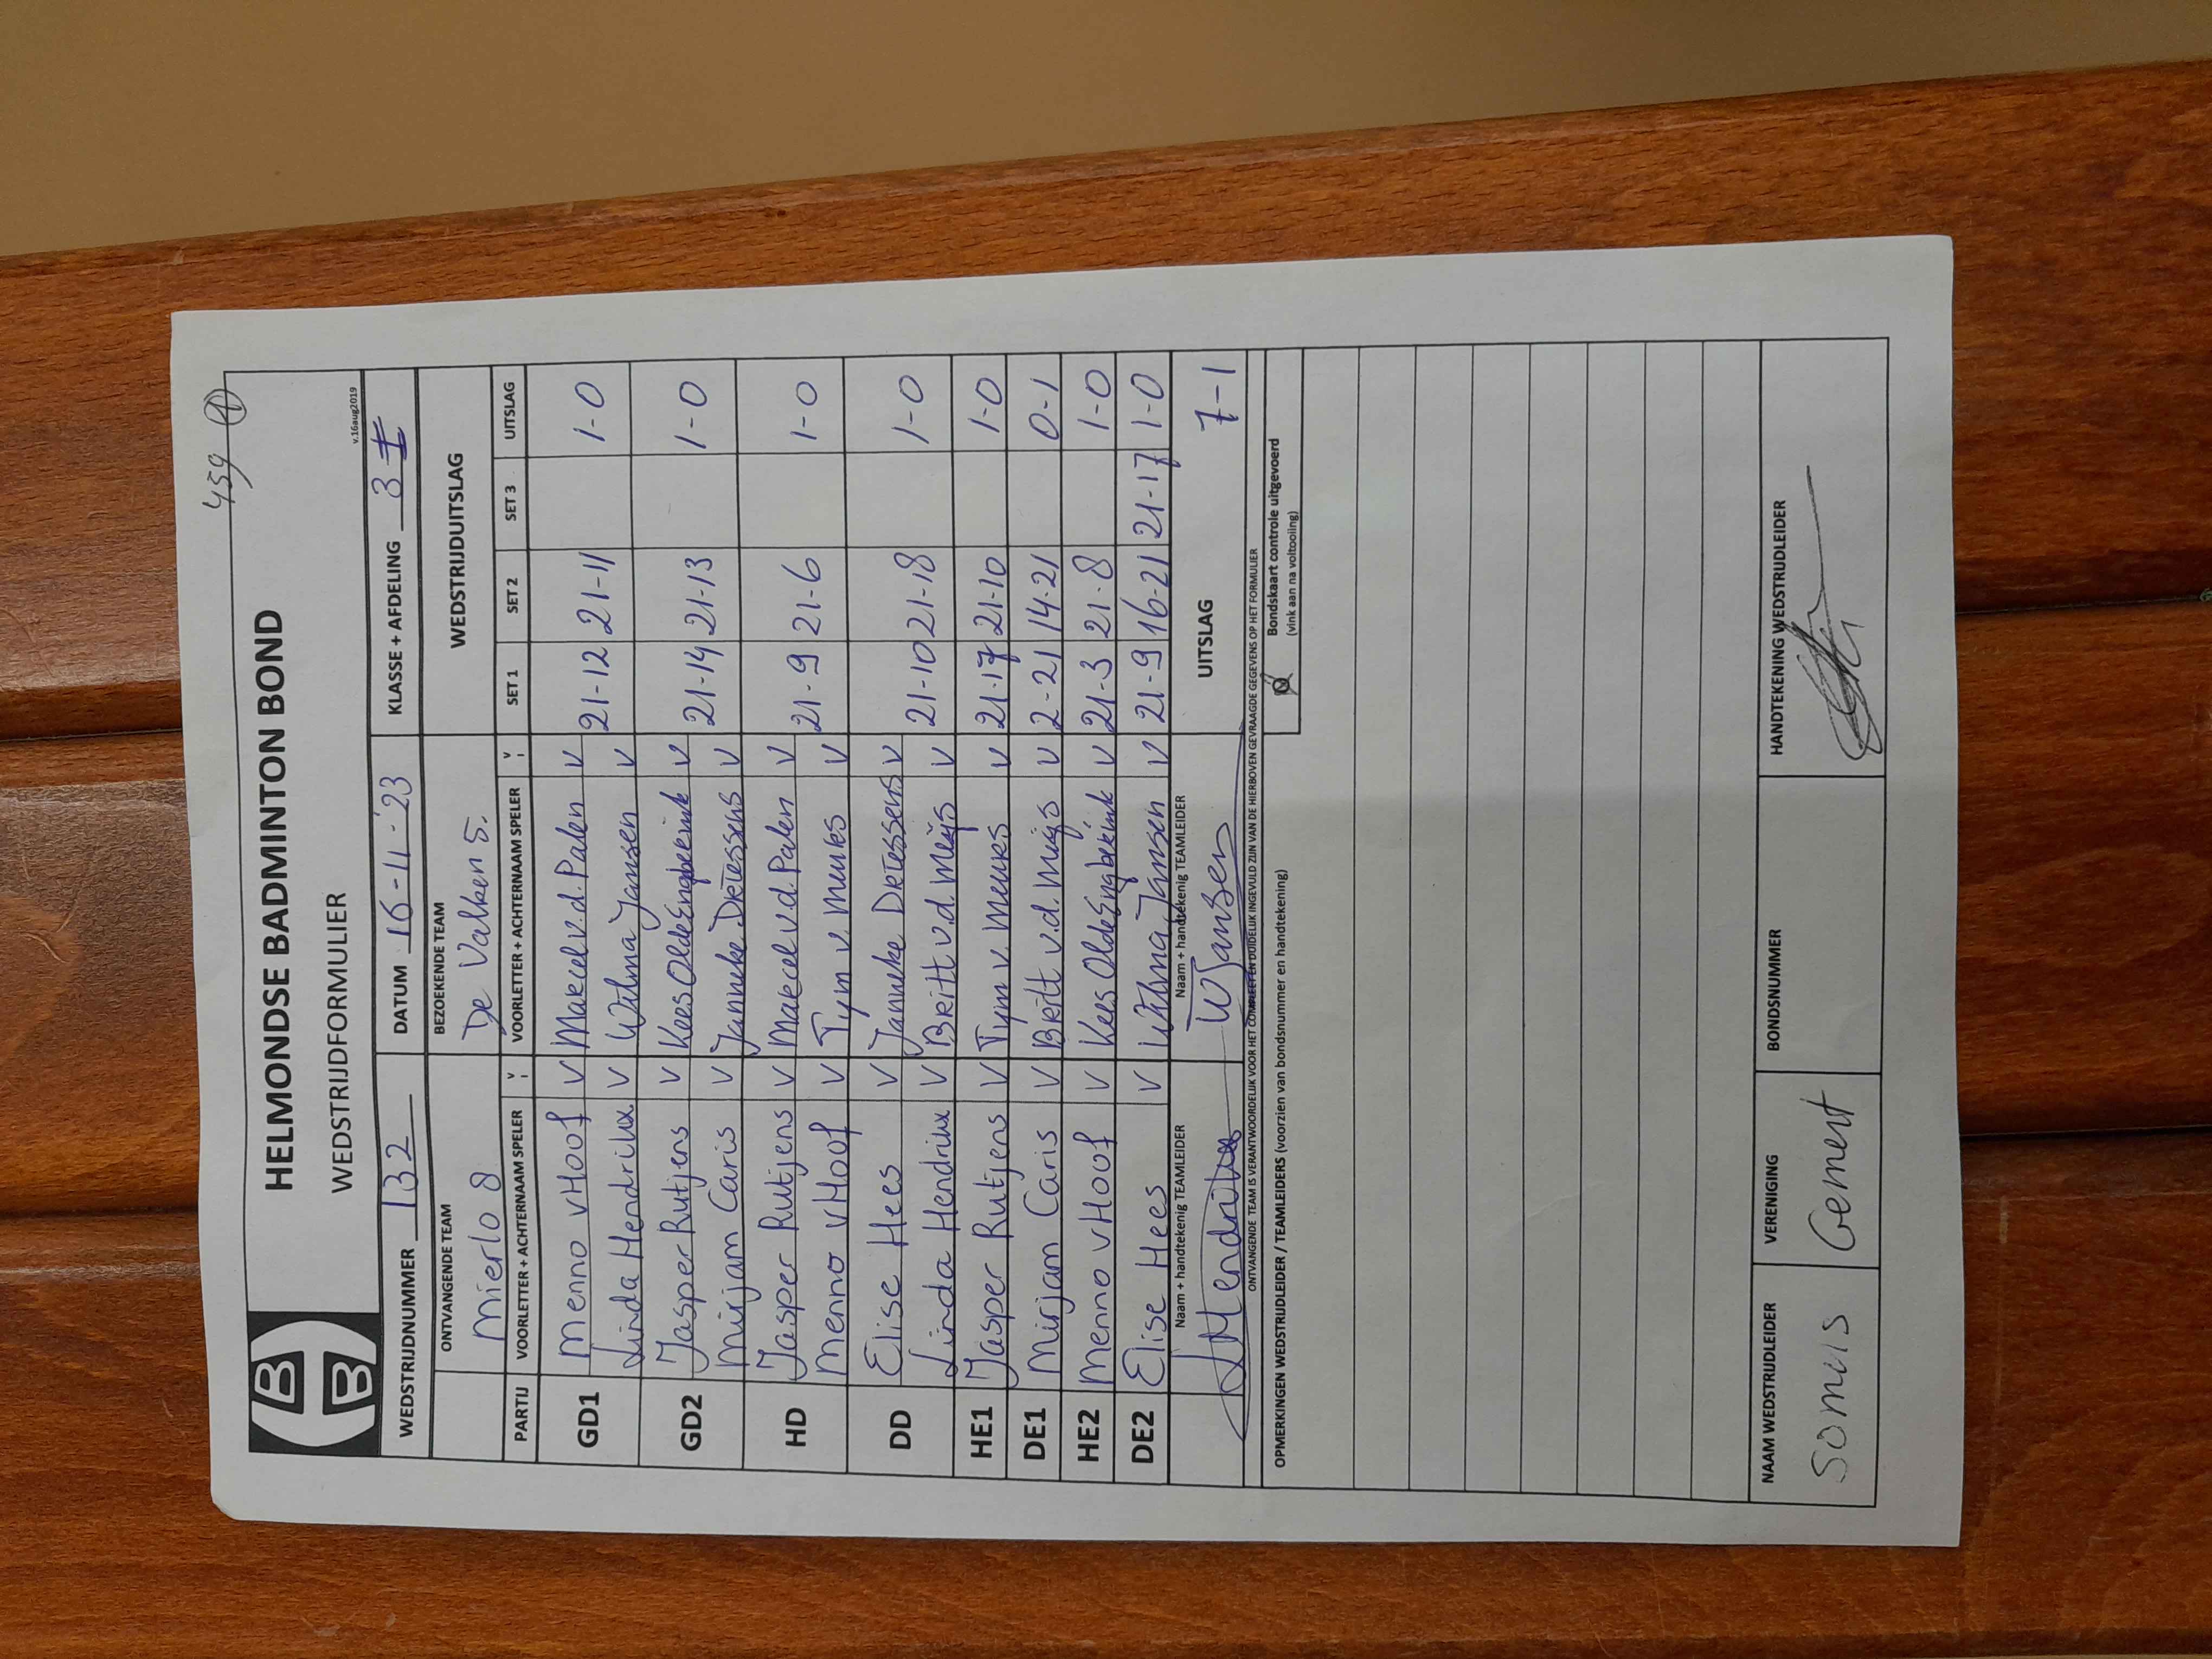 459 (A)
HELMONDSE BADMINTON BOND
WEDSTRIJDFORMULIER
v.16aug2019
WEDSTRIJDNUMMER 132 DATUM 16-11-'23 KLASSE + AFDELING 3
ONTVANGENDE TEAM BEZOEKENDE TEAM WEDSTRIJDUITSLAG
Mierlo 8 De Valken 5.
PARTIJ VOORLETTER + ACHTERNAAM SPELER VOORLETTER + ACHTERNAAM SPELER SET 1 SET 2 SET 3 UITSLAG
GD1 Menno vHoof V Marcel v.d. Palen V 21-12 21-11 1-0
Linda Hendrikx V Wilma Jansen V
GD2 Jasper Rutjens V Kees Olde Engberink V 21-14 21-13 1-0
Mirjam Caris V Janneke Driessens V
HD Jasper Rutjens V Marcel v.d. Palen V 21-9 21-6 1-0
Menno vHoof V Tym v. Meurs V
DD Elise Hees V Janneke Driessens V 21-10 21-18 1-0
Linda Hendrikx V Britt v.d. Meijs V
HE1 Jasper Rutjens V Tym v. Meurs V 21-17 21-10 1-0
DE1 Mirjam Caris V Britt v.d. Meijs V 2-21 14-21 0-1
HE2 Menno vHoof V Kees Olde Engberink V 21-3 21-8 1-0
DE2 Elise Hees V Wilma Jansen V 21-9 16-21 21-17 1-0
Naam + handtekenig TEAMLEIDER Naam + handtekenig TEAMLEIDER UITSLAG 7-1
LHendrikx WJansen
ONTVANGENDE TEAM IS VERANTWOORDELIJK VOOR HET COMPLEET EN DUIDELIJK INGEVULD ZIJN VAN DE HIERBOVEN GEVRAAGDE GEGEVENS OP HET FORMULIER
OPMERKINGEN WEDSTRIJDLEIDER / TEAMLEIDERS (voorzien van bondsnummer en handtekening) Bondskaart controle uitgevoerd
(vink aan na voltooiing)
NAAM WEDSTRIJDLEIDER VERENIGING BONDSNUMMER HANDTEKENING WEDSTRIJDLEIDER
Gemert